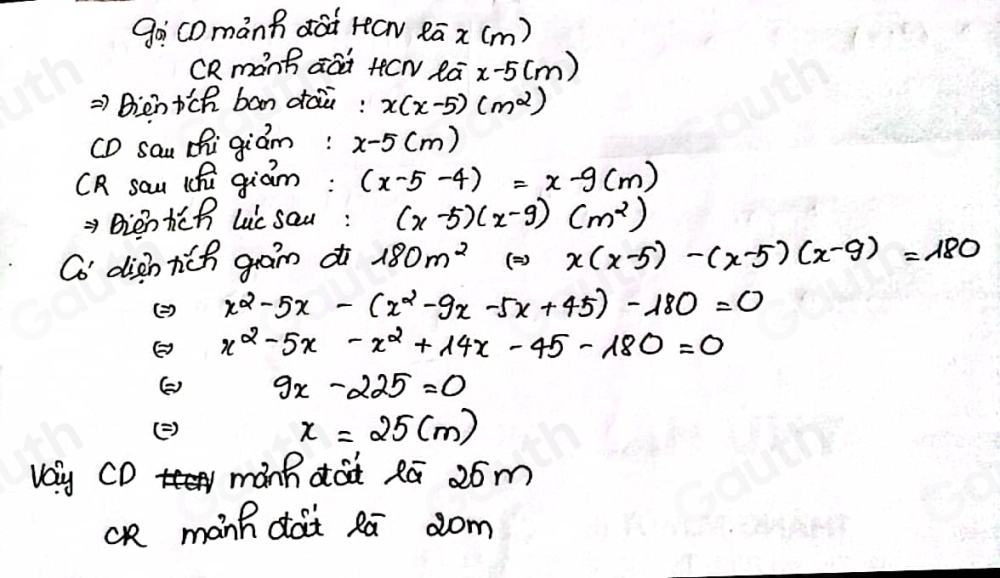 Gọi CD mảnh đất HCN là x (m)
CR mảnh đất HCN là x-5 (m)
=> Diện tích ban đầu : x(x-5) (m²)
CD sau khi giảm : x-5 (m)
CR sau khi giảm : (x-5-4) = x-9 (m)
=> Diện tích lúc sau : (x-5)(x-9) (m²)
Có diện tích giảm đi 180m² (=) x(x-5) - (x-5)(x-9) = 180
(=) x² - 5x - (x² - 9x - 5x + 45) - 180 = 0
(=) x² - 5x - x² + 14x - 45 - 180 = 0
(=) 9x - 225 = 0
(=) x = 25 (m)
Vậy CD HCN mảnh đất là 25m
CR mảnh đất là 20m